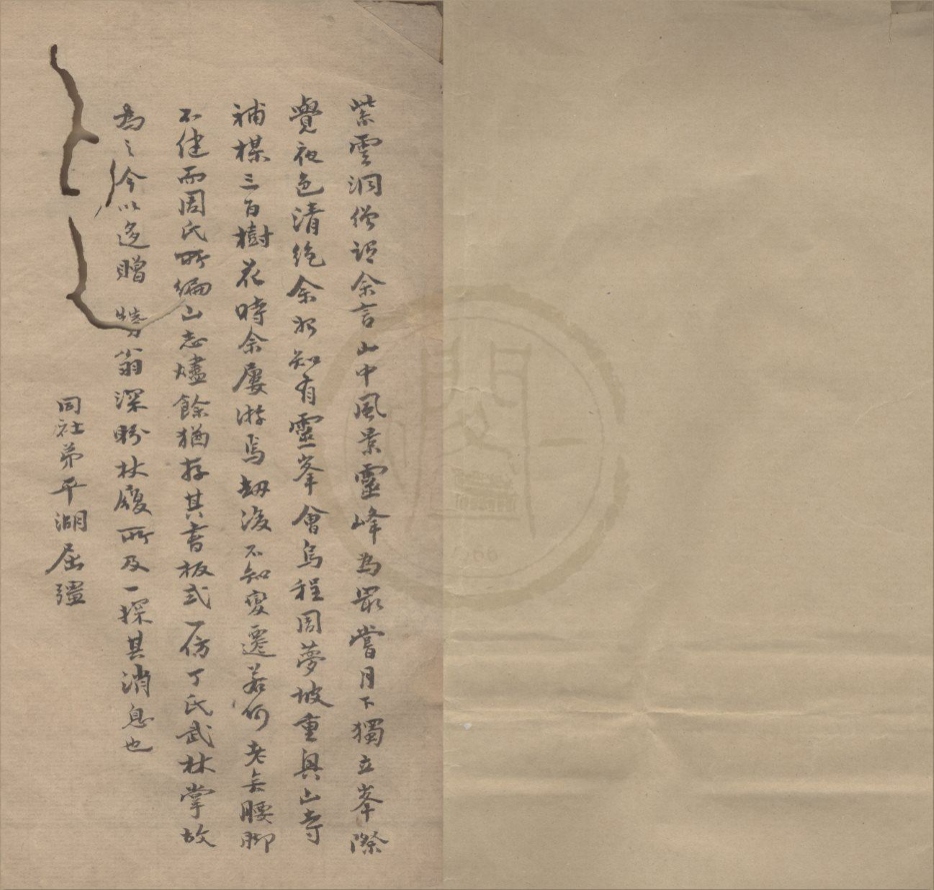 紫雲洞僧語余言山中風景靈峰為最嘗月下獨立峯際
覺夜色清絶余始知有靈峯會烏程周夢坡重興山寺
補楳三百樹花時余屢游焉劫後不知變遷若何老去腰脚
不健而周氏所編山志燼餘猶存其書板式一仿丁氏武林掌故
為之今以迻贈 翁深盼杖履所及一探其消息也
同社弟平湖屈彊